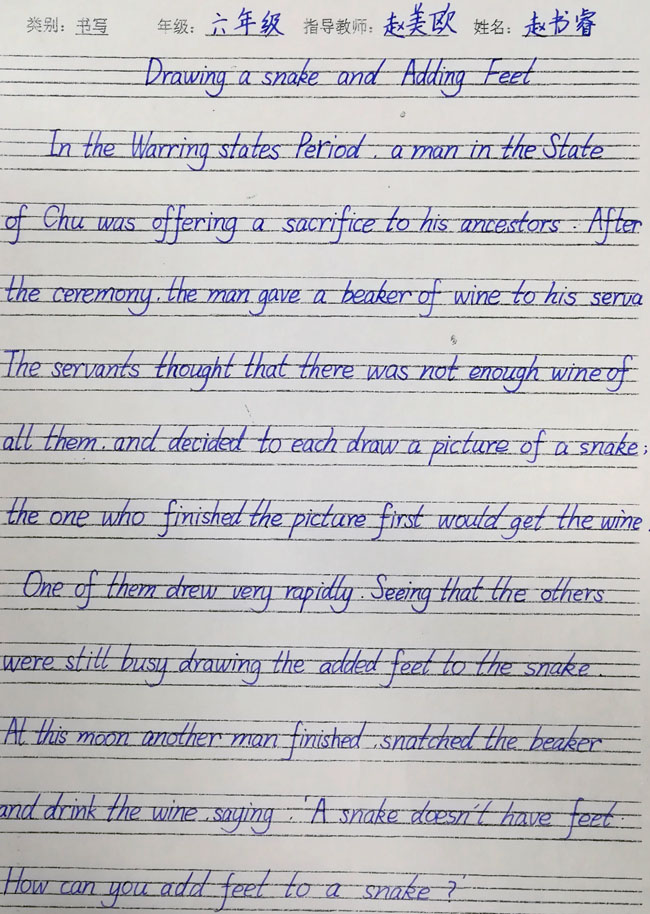 类别: 书写 年级: 六年级 指导教师: 赵美欧 姓名: 赵书睿
Drawing a snake and Adding Feet
In the Warring states Period. a man in the State
of Chu was offering a sacrifice to his ancestors. After
the ceremony. the man gave a beaker of wine to his serva
The servants thought that there was not enough wine of
all them. and decided to each draw a picture of a snake;
the one who finished the picture first would get the wine.
One of them drew very rapidly. Seeing that the others
were still busy drawing the added feet to the snake.
At this moon another man finished. snatched the beaker
and drink the wine. saying. 'A snake doesn't have feet.
How can you add feet to a snake?'